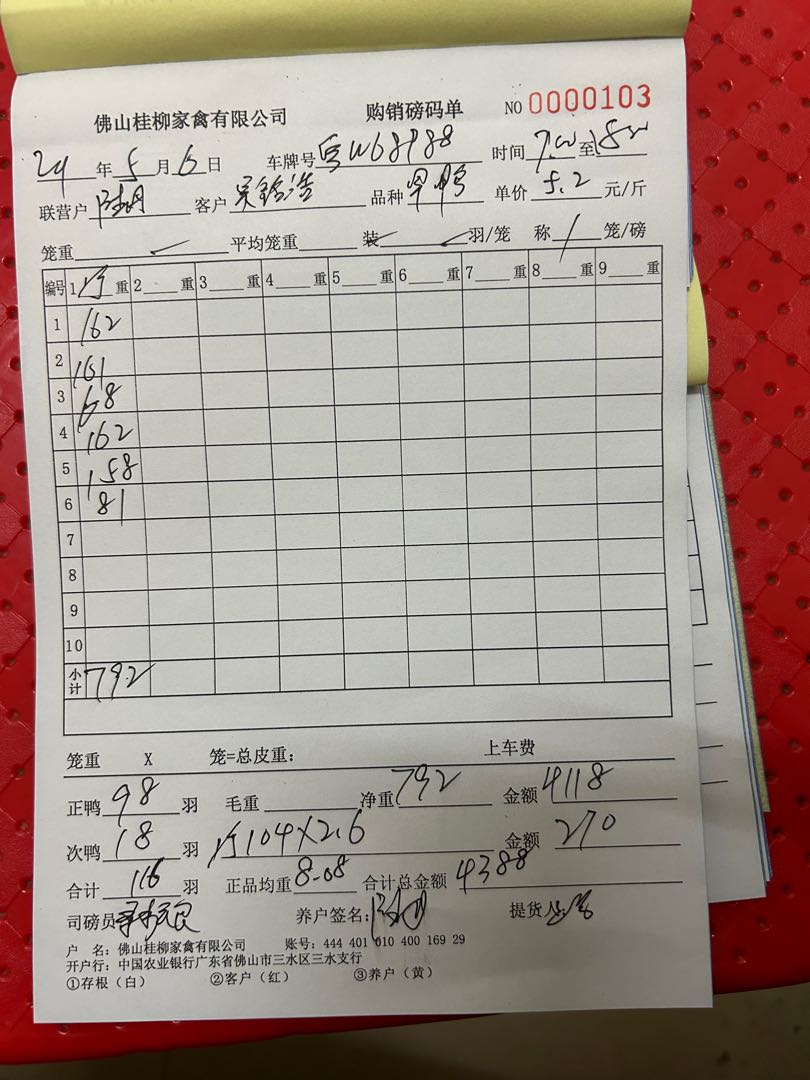 佛山桂柳家禽有限公司 购销磅码单 NO 0000103
24 年 5 月 6 日 车牌号 粤W68988 时间 7:00 至 8:00
联营户 客户 吴铭浩 品种 旱鸭 单价 5.2 元/斤
笼重 ✓ 平均笼重 装 ✓ 羽/笼 称 / 笼/磅
编号 1 净 重 2 重 3 重 4 重 5 重 6 重 7 重 8 重 9 重
1 162
2 161
3 68
4 162
5 158
6 81
7
8
9
10
小计 792
笼重 X 笼=总皮重: 上车费
正鸭 98 羽 毛重 净重 792 金额 4118
次鸭 18 羽 104×2.6 金额 270
合计 116 羽 正品均重 8.08 合计总金额 4388
司磅员 养户签名: 提货人
户 名: 佛山桂柳家禽有限公司 账号: 444 401 010 400 169 29
开户行: 中国农业银行广东省佛山市三水区三水支行
①存根(白) ②客户(红) ③养户(黄)